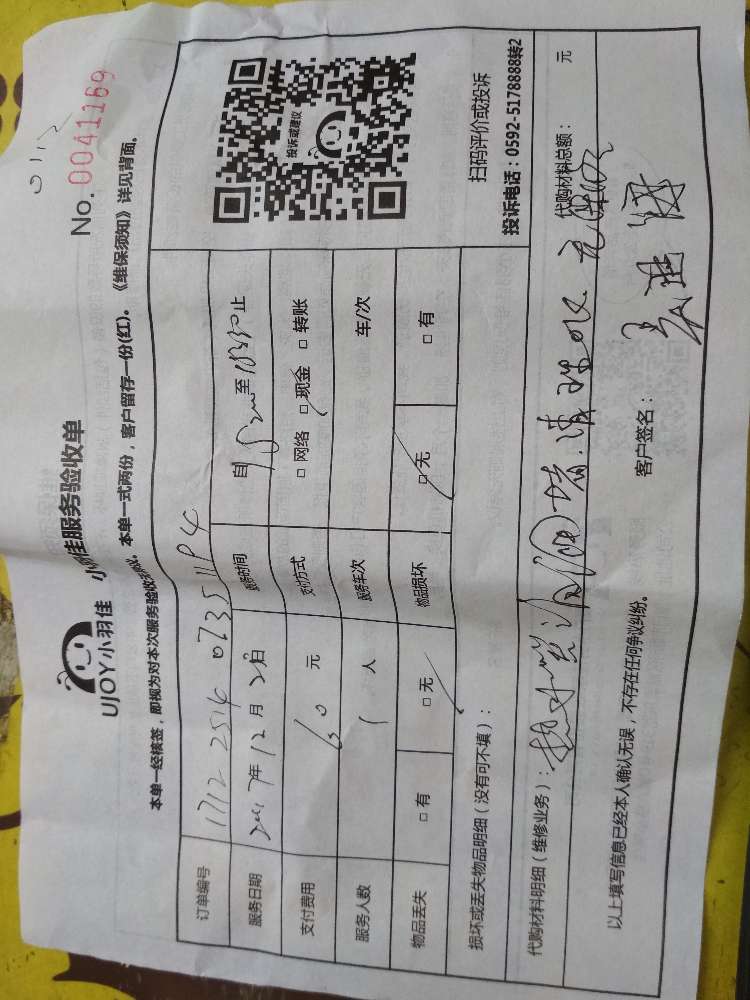 0112
No. 0041169
UJOY小羽佳 小羽佳服务验收单
本单一经核签，即视为对本次服务验收 本单一式两份，客户留存一份(红)。《维保须知》详见背面。
订单编号 1712 2514 0735 1194
服务日期 2017年12月2日 服务时间 自 至18:30止
支付费用 60元 支付方式 □网络 □现金 □转账
服务人数 1人 服务车次 车/次
物品丢失 □有 □无 物品损坏 □无 □有
投诉或建议
扫码评价或投诉
投诉电话：0592-5178888转2
损坏或丢失物品明细（没有可不填）：
代购材料明细（维修业务）： 代购材料总额： 元
以上填写信息已经本人确认无误，不存在任何争议纠纷。 客户签名：